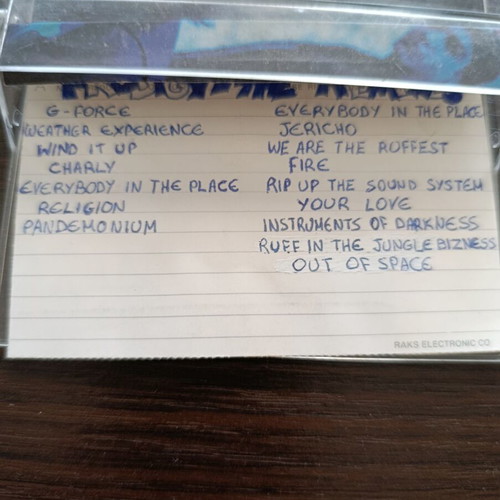 PRODIGY-THE REMIXES
G-FORCE
WEATHER EXPERIENCE
WIND IT UP
CHARLY
EVERYBODY IN THE PLACE
RELIGION
PANDEMONIUM
EVERYBODY IN THE PLACE
JERICHO
WE ARE THE RUFFEST
FIRE
RIP UP THE SOUND SYSTEM
YOUR LOVE
INSTRUMENTS OF DARKNESS
RUFF IN THE JUNGLE BIZNESS
OUT OF SPACE
RAKS ELECTRONIC CO